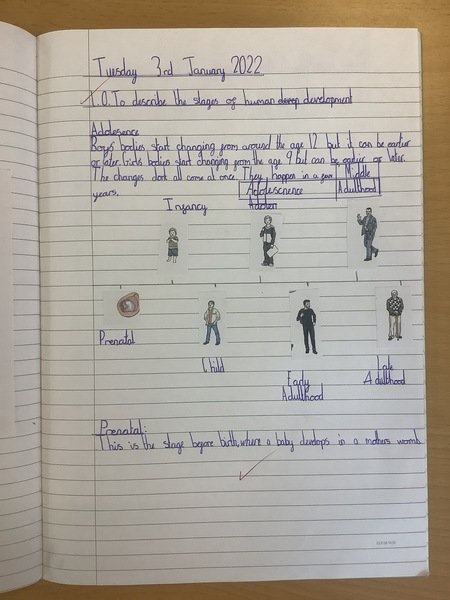 Tuesday 3rd January 2022
L.O. To describe the stages of human development
Adolesence
Boys bodies start changing from around the age 12 but it can be earlier
or later. Girls bodies start changing from the age 9 but can be earlier or later.
The changes dont all come at once. They happen in a few
years.
Middle
Adulthood
Adolescnence
Infancy
Prenatal
Child
Early
Adulthood
Late
Adulthood
Prenatal:
This is the stage before birth, where a baby develops in a mothers womb